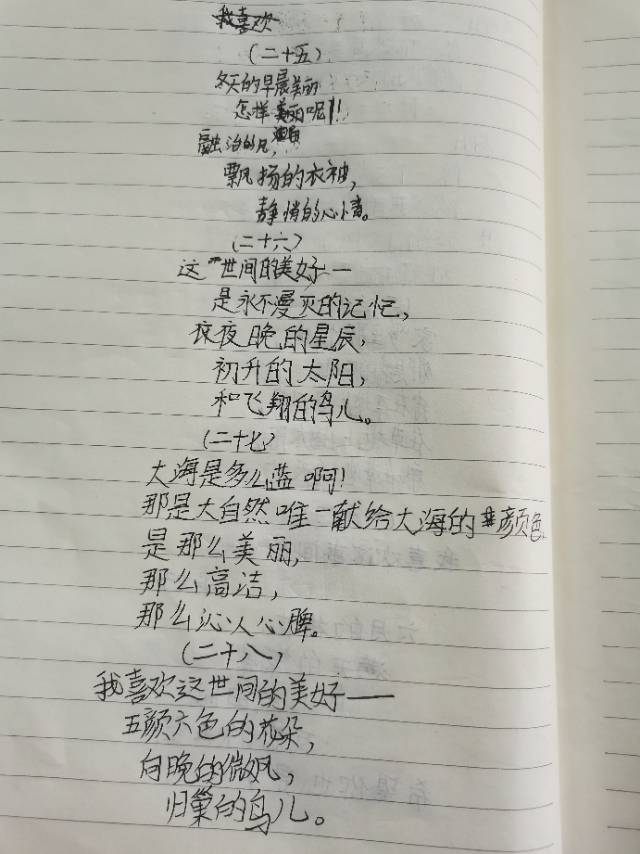 我喜欢
（二十五）
冬天的早晨美丽
怎样美丽呢！！
融冶的风，
飘扬的衣袖，
静悄的心情。
（二十六）
这世间的美好——
是永不漫灭的记忆，
夜晚的星辰，
初升的太阳，
和飞翔的鸟儿。
（二十七）
大海是多么蓝啊！
那是大自然唯一献给大海的颜色
是那么美丽，
那么高洁，
那么沁人心脾。
（二十八）
我喜欢这世间的美好——
五颜六色的花朵，
向晚的微风，
归巢的鸟儿。